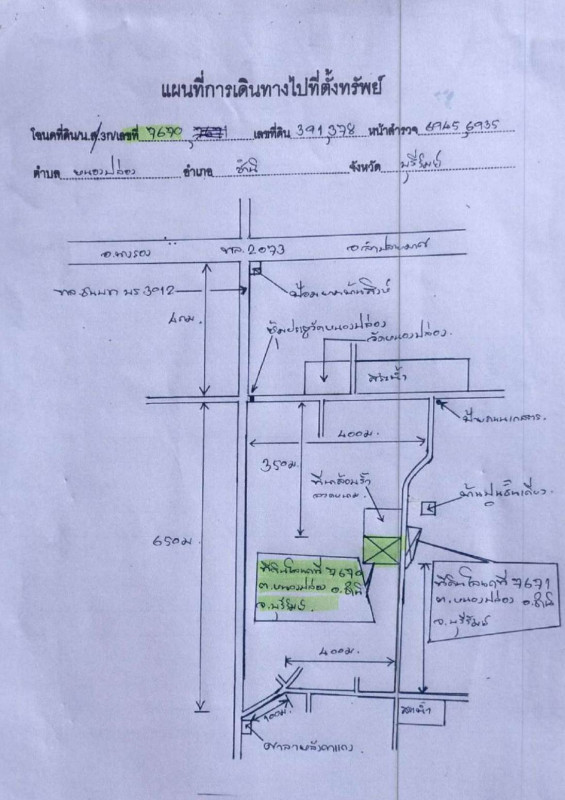 แผนที่การเดินทางไปที่ตั้งทรัพย์
โฉนดที่ดิน/น.ส.3ก/เลขที่ 7670, 7671 เลขที่ดิน 391,378 หน้าสำรวจ 6945,6935
ตำบล หนองปล่อง อำเภอ ชำนิ จังหวัด บุรีรัมย์
อ.นางรอง ทล.2073 อ.ลำปลายมาศ
ทล.ชนบท บร.3012
ป้อมยาม
4กม.
ซุ้มประตูวัดหนองปล่อง
วัดหนองปล่อง
สระน้ำ
400ม.
350ม.
ที่ดินล้อมรั้ว
ลวดหนาม
บ้านปูนชั้นเดียว
650ม.
ที่ดินโฉนดที่ 7670
ต.หนองปล่อง อ.ชำนิ
จ.บุรีรัมย์
ที่ดินโฉนดที่ 7671
ต.หนองปล่อง อ.ชำนิ
จ.บุรีรัมย์
400ม.
100ม.
สระน้ำ
ศาลาหลังคาแดง